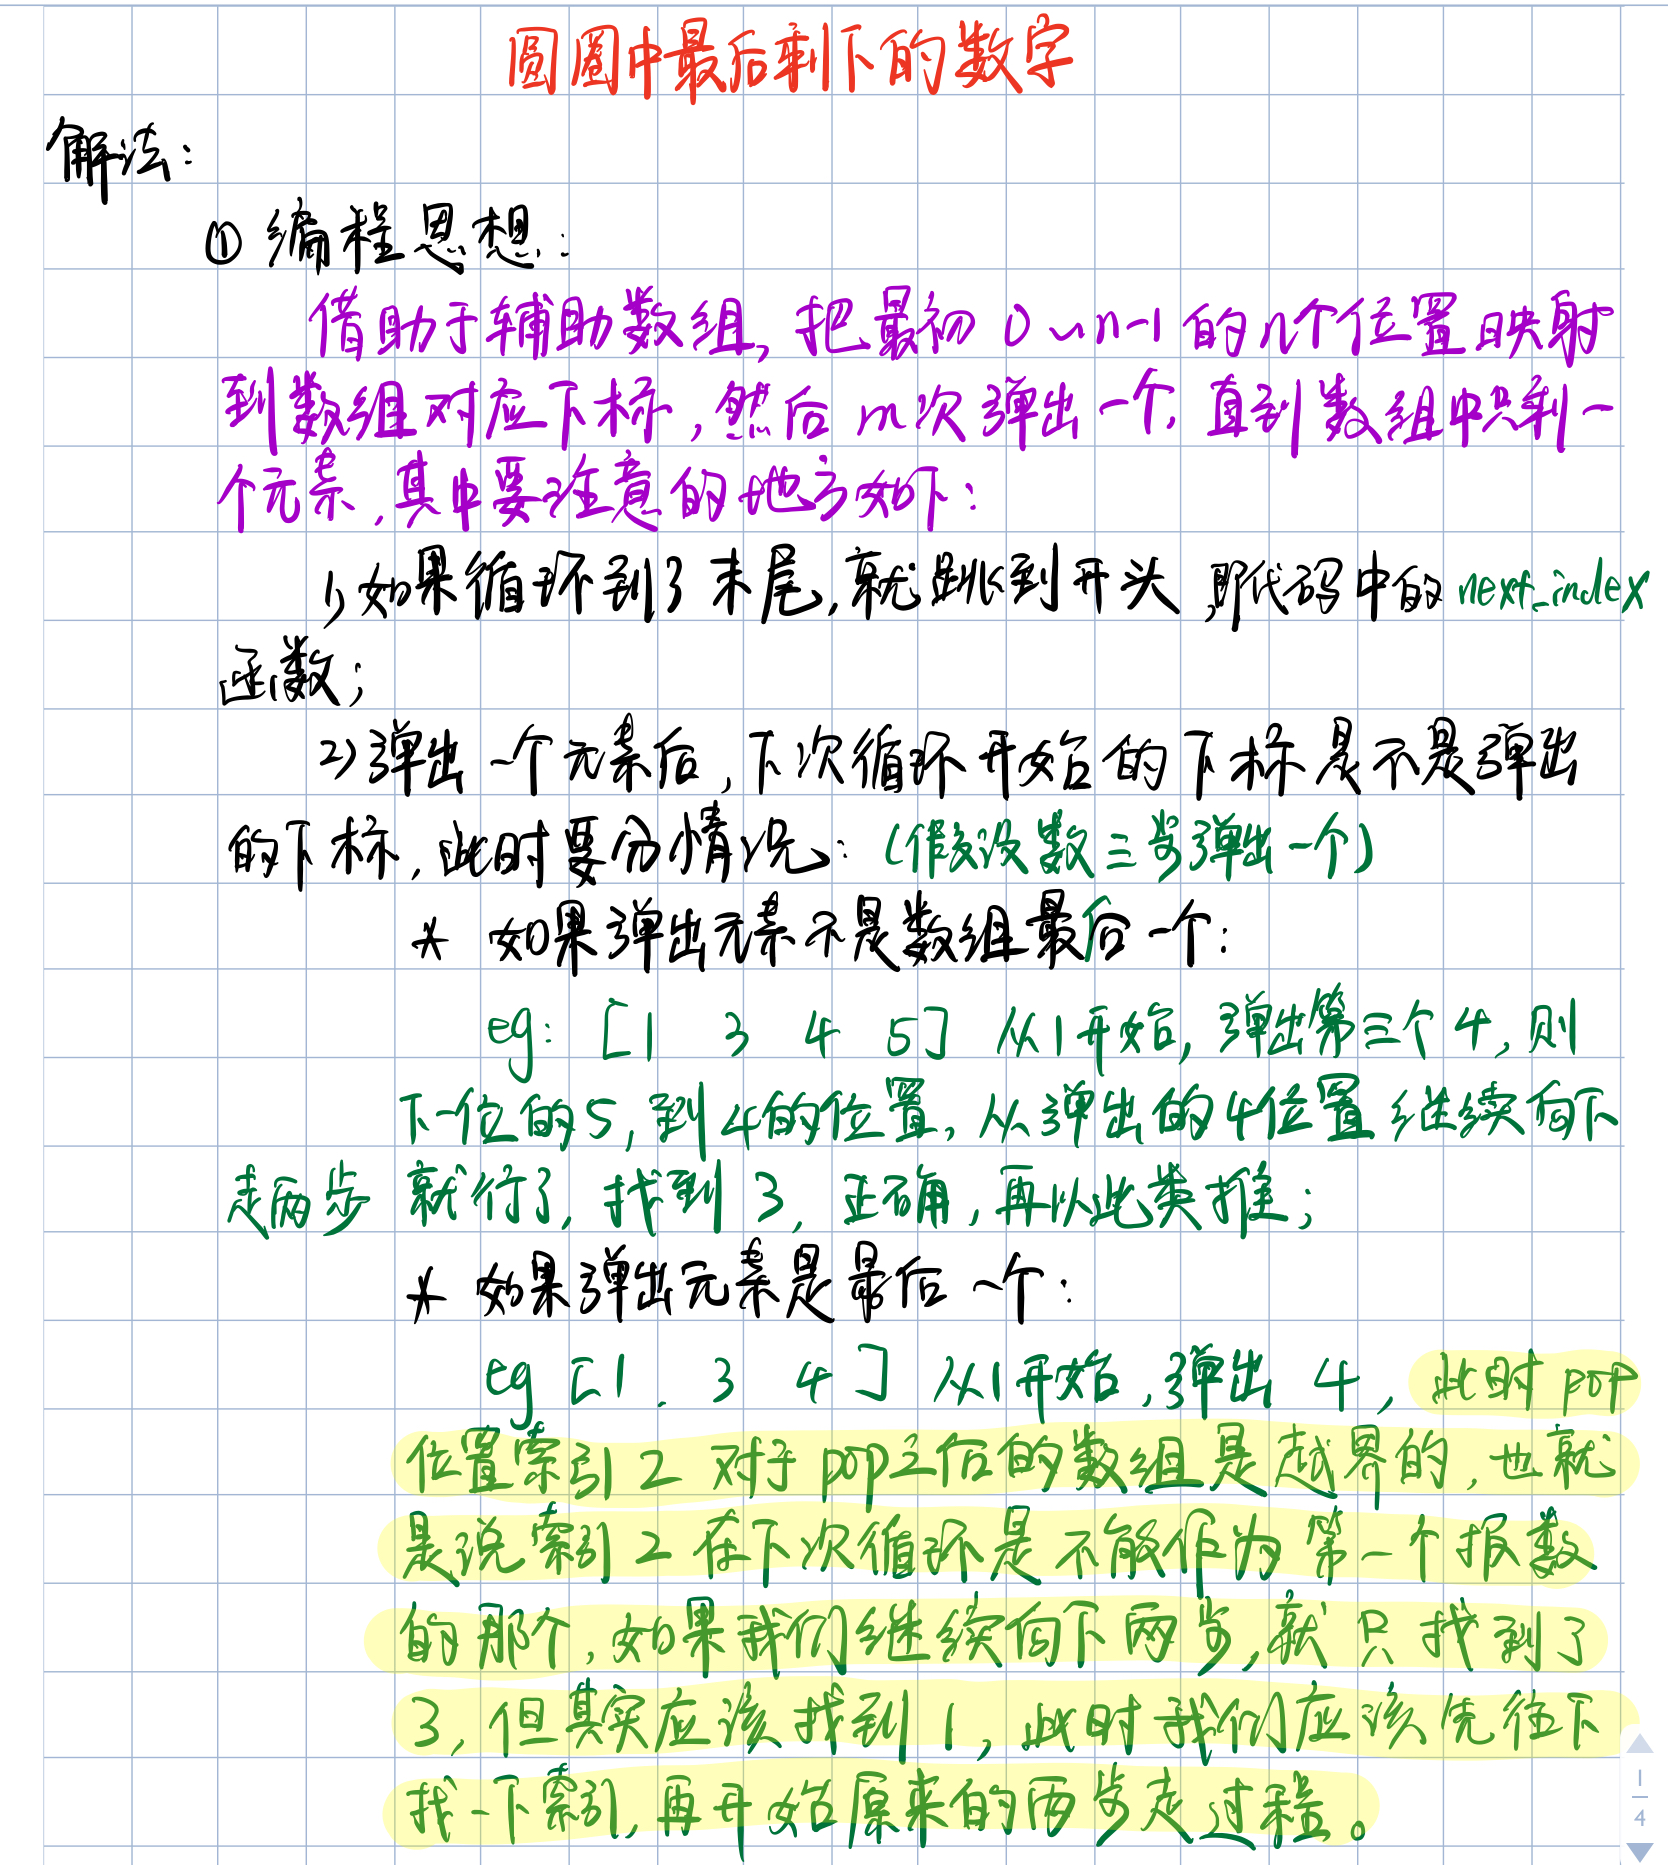 圆圈中最后剩下的数字
解法：
① 编程思想：
借助于辅助数组，把最初 0~n-1 的n个位置映射
到数组对应下标，然后 m次弹出一个，直到数组中只剩一
个元素，其中要注意的地方如下：
1) 如果循环到了末尾，就跳到开头，即代码中的 next_index
函数；
2) 弹出一个元素后，下次循环开始的下标是不是弹出
的下标，此时要分情况：(假设数三步弹出一个)
* 如果弹出元素不是数组最后一个：
eg: [1 3 4 5] 从1开始，弹出第三个4，则
下一位的5，到4的位置，从弹出的4位置继续向下
走两步 就行了，找到 3，正确，再以此类推；
* 如果弹出元素是最后一个：
eg [1. 3 4] 从1开始，弹出 4，此时 pop
位置索引 2 对于 pop之后的数组是越界的，也就
是说索引 2 在下次循环是不能作为第一个报数
的那个，如果我们继续向下两步，就只找到了
3，但其实应该找到 1，此时我们应该先往下
找一下索引，再开始原来的两步走过程。
1
4